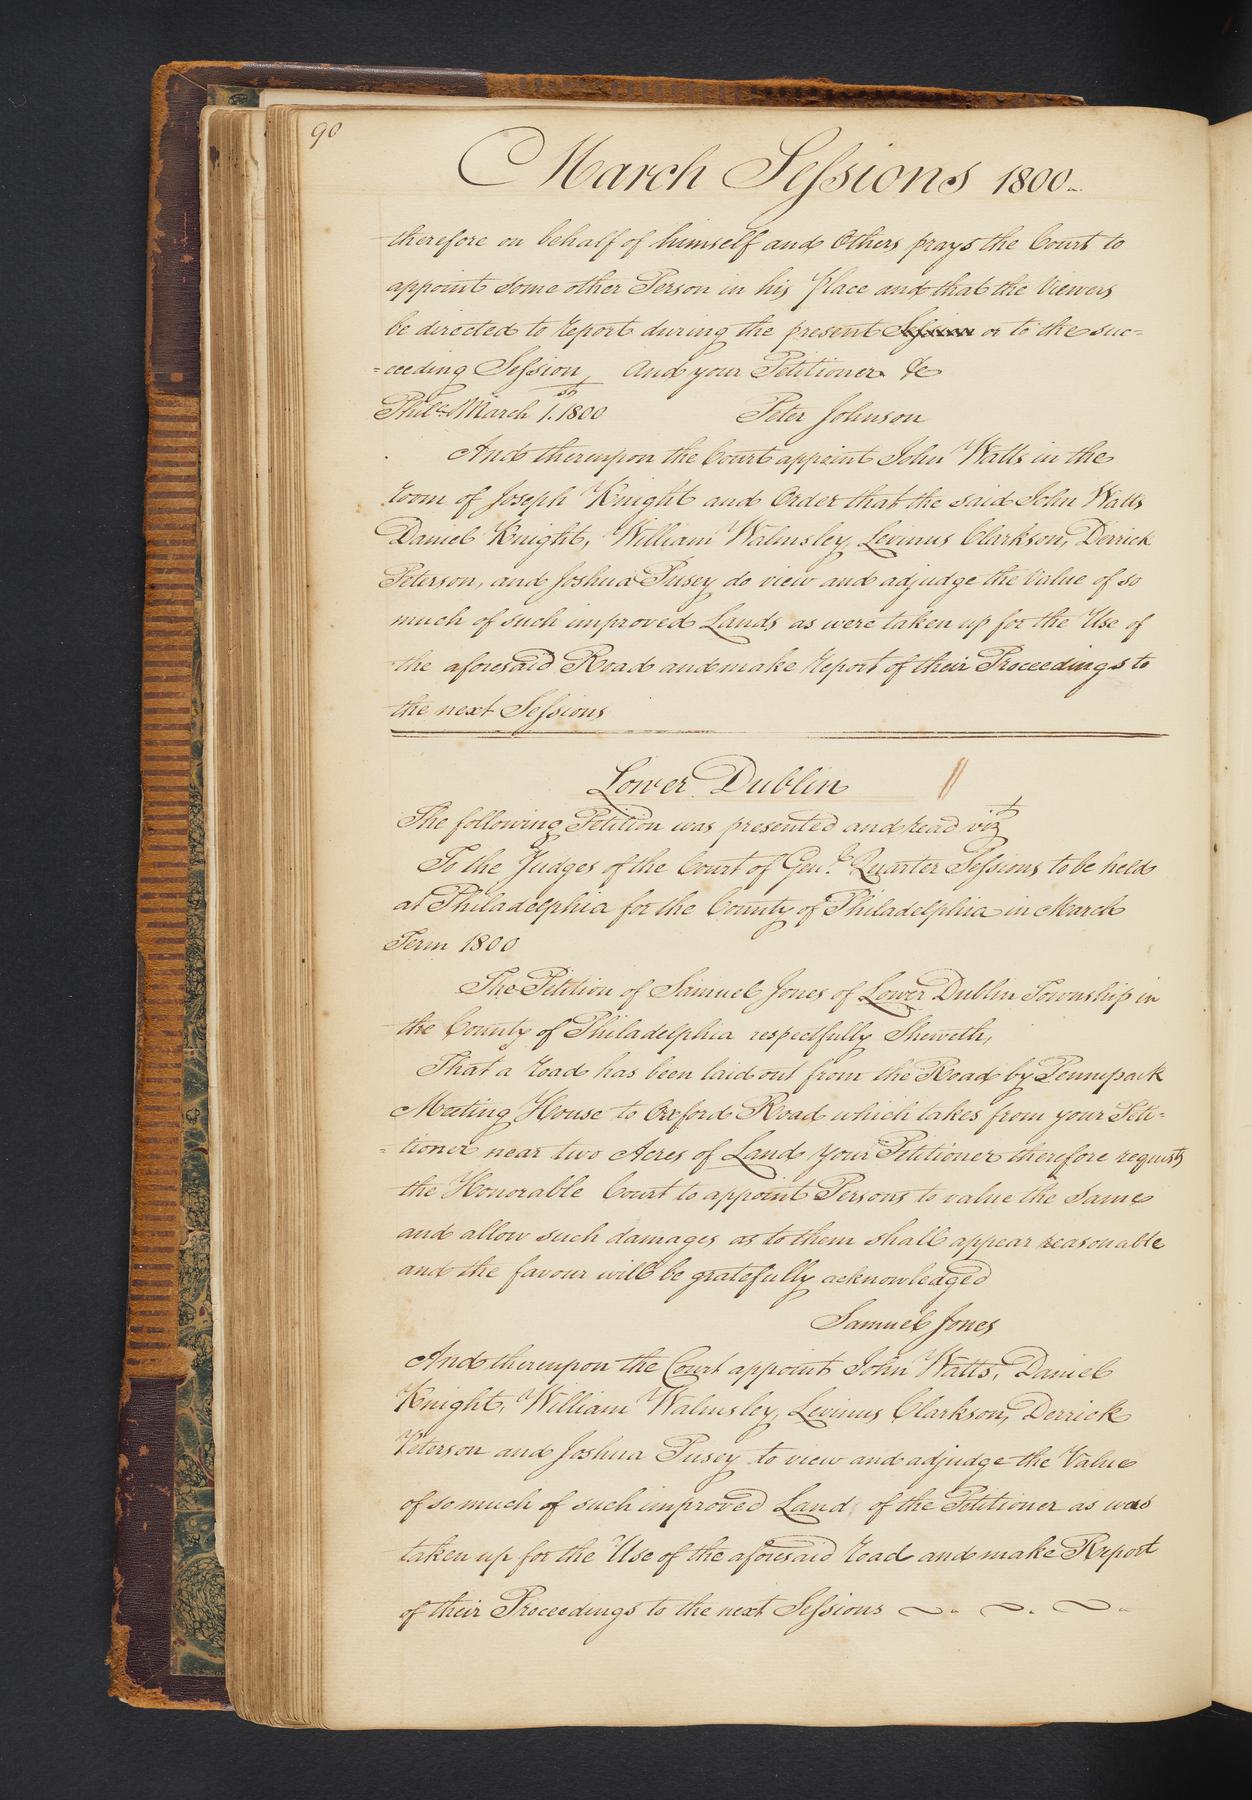 90
March Sessions 1800
therefore on behalf of himself and Others prays the Court to
appoint some other Person in his Place and that the Viewers
be directed to report during the present Session or to the suc=
=ceeding Session, And your Petitioner &c
Phila. March 1st. 1800 Peter Johnson
And thereupon the Court appoint John Watts in the
room of Joseph Knight and Order that the said John Watts
Daniel Knight, William Walmsley, Levinus Clarkson, Derrick
Peterson, and Joshua Pusey do view and adjudge the Value of so
much of such improved Lands as were taken up for the Use of
the aforesaid Road and make report of their Proceedings to
the next Sessions
Lower Dublin
The following Petition was presented and read vizt
To the Judges of the Court of Genl. Quarter Sessions to be held
at Philadelphia for the County of Philadelphia in March
Term 1800
The Petition of Samuel Jones of Lower Dublin Township in
the County of Philadelphia respectfully Sheweth,
That a road has been laid out from the Road by Pennipack
Meeting House to Oxford Road which takes from your Peti=
=tioner near two Acres of Land your Petitioner therefore requests
the Honorable Court to appoint Persons to value the Same
and allow such damages as to them shall appear reasonable
and the favour will be gratefully acknowledged
Samuel Jones
And thereupon the Court appoint John Watts, Daniel
Knight, William Walmsley, Levinus Clarkson, Derrick
Peterson and Joshua Pusey to view and adjudge the Value
of so much of such improved Land of the Petitioner as was
taken up for the Use of the aforesaid road and make Report
of their Proceedings to the next Sessions